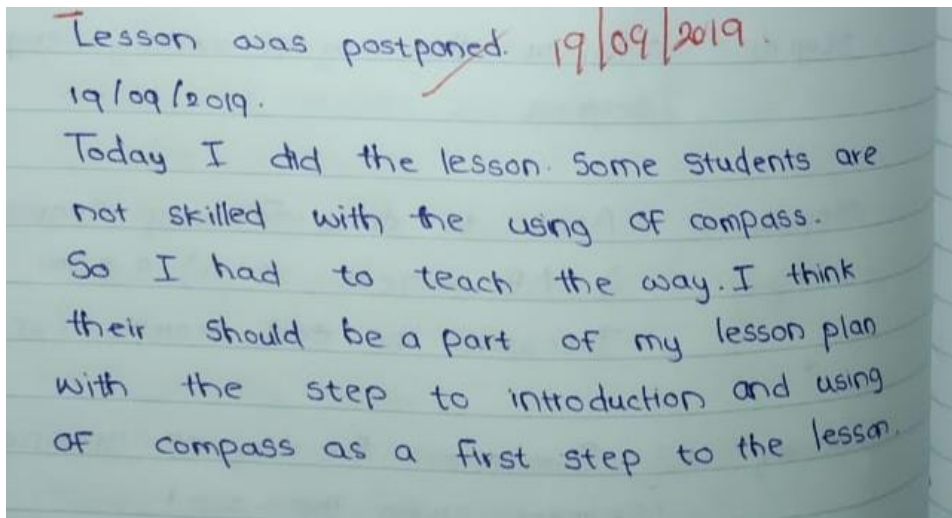 Lesson was postponed. 19/09/2019.
19/09/2019.
Today I did the lesson. Some students are
not skilled with the using of compass.
So I had to teach the way. I think
their should be a part of my lesson plan
with the step to introduction and using
of compass as a first step to the lesson.